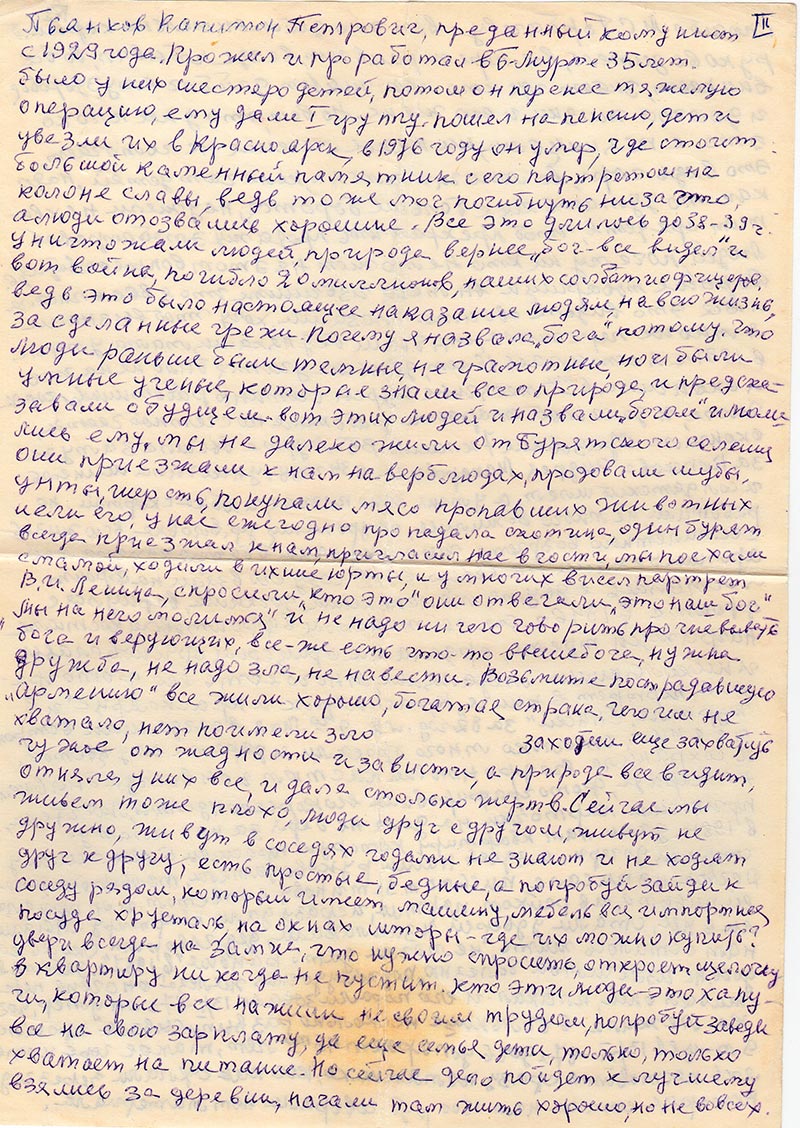 II
Пьянков Капитон Петрович, преданный комунист
с 1929 года. Прожил и проработал в Б-Мурте 35 лет.
было у них шестеро детей, потом он перенес тяжелую
операцию, ему дали I группу. пошел на пенсию, дети
увезли их в Красноярск, в 1976 году он умер, где стоит
большой каменный памятник с его партретом на
колоне славы, ведь тоже мог погибнуть низа что,
а люди отозвались хорошие. Все это длилось до 38-39 г.
уничтожали людей, природа вернее, „бог-все видел" и
вот война, погибло 20 миллионов, наших солдат и офицеров,
ведь это было настоящее наказание людям, на всю жизнь,
за сделанные грехи. Почему я назвала „бога" потому. что
люди раньше были темные, не грамотные, но и были
умные ученые, которые знали все о природе, и предска-
завали о будущем. вот этих людей и назвали „богом" и моли-
лись ему, мы не далеко жили от бурятского
они приезжали к нам на верблюдах, продовали шубы,
унты, шерсть, покупали мясо пропавших животных
и ели его, у нас ежегодно пропадала скотина, один бурят
всегда приезжал к нам, пригласил нас в гости, мы поехали
с мамой, ходили в ихние юрты, и у многих висел партрет
В.И. Ленина, спросили „кто это" они отвечали, „это наш бог"
„мы на него молимся" и не надо ни чего говорить про
бога и верующих, все-же есть что-то, выше бога, нужна
дружба, не надо зла, не навести. Возьмите пострадавшую
„Армению" все жили хорошо, богатая страна, чего им не
хватало, нет поимели зло захотели еще захватить
чужое от жадности и зависти, а природа все видит,
отняла у них все, и дала столько жертв. Сейчас мы
живем тоже плохо, люди друг с другом, живут не
дружно, живут в соседях годами не знают и не ходят
друг к другу, есть простые, бедные, а попробуй зайди к
соседу рядом, который имеет машину, мебель вся импортная
посуда хрусталь, на окнах шторы-где их можно купить?
двери всегда на замке, что нужно спросить, откроет щелочку
в квартиру ни когда не пустит. кто эти люди-это хапу-
ги, которые все нажили не своим трудом, попробуй заведи
все на свою зарплату, да еще семья дети, только, только
хватает на питание. Но сейчас дело пойдет к лучшему
взялись за деревни, начали там жить хорошо, но не вовсех.